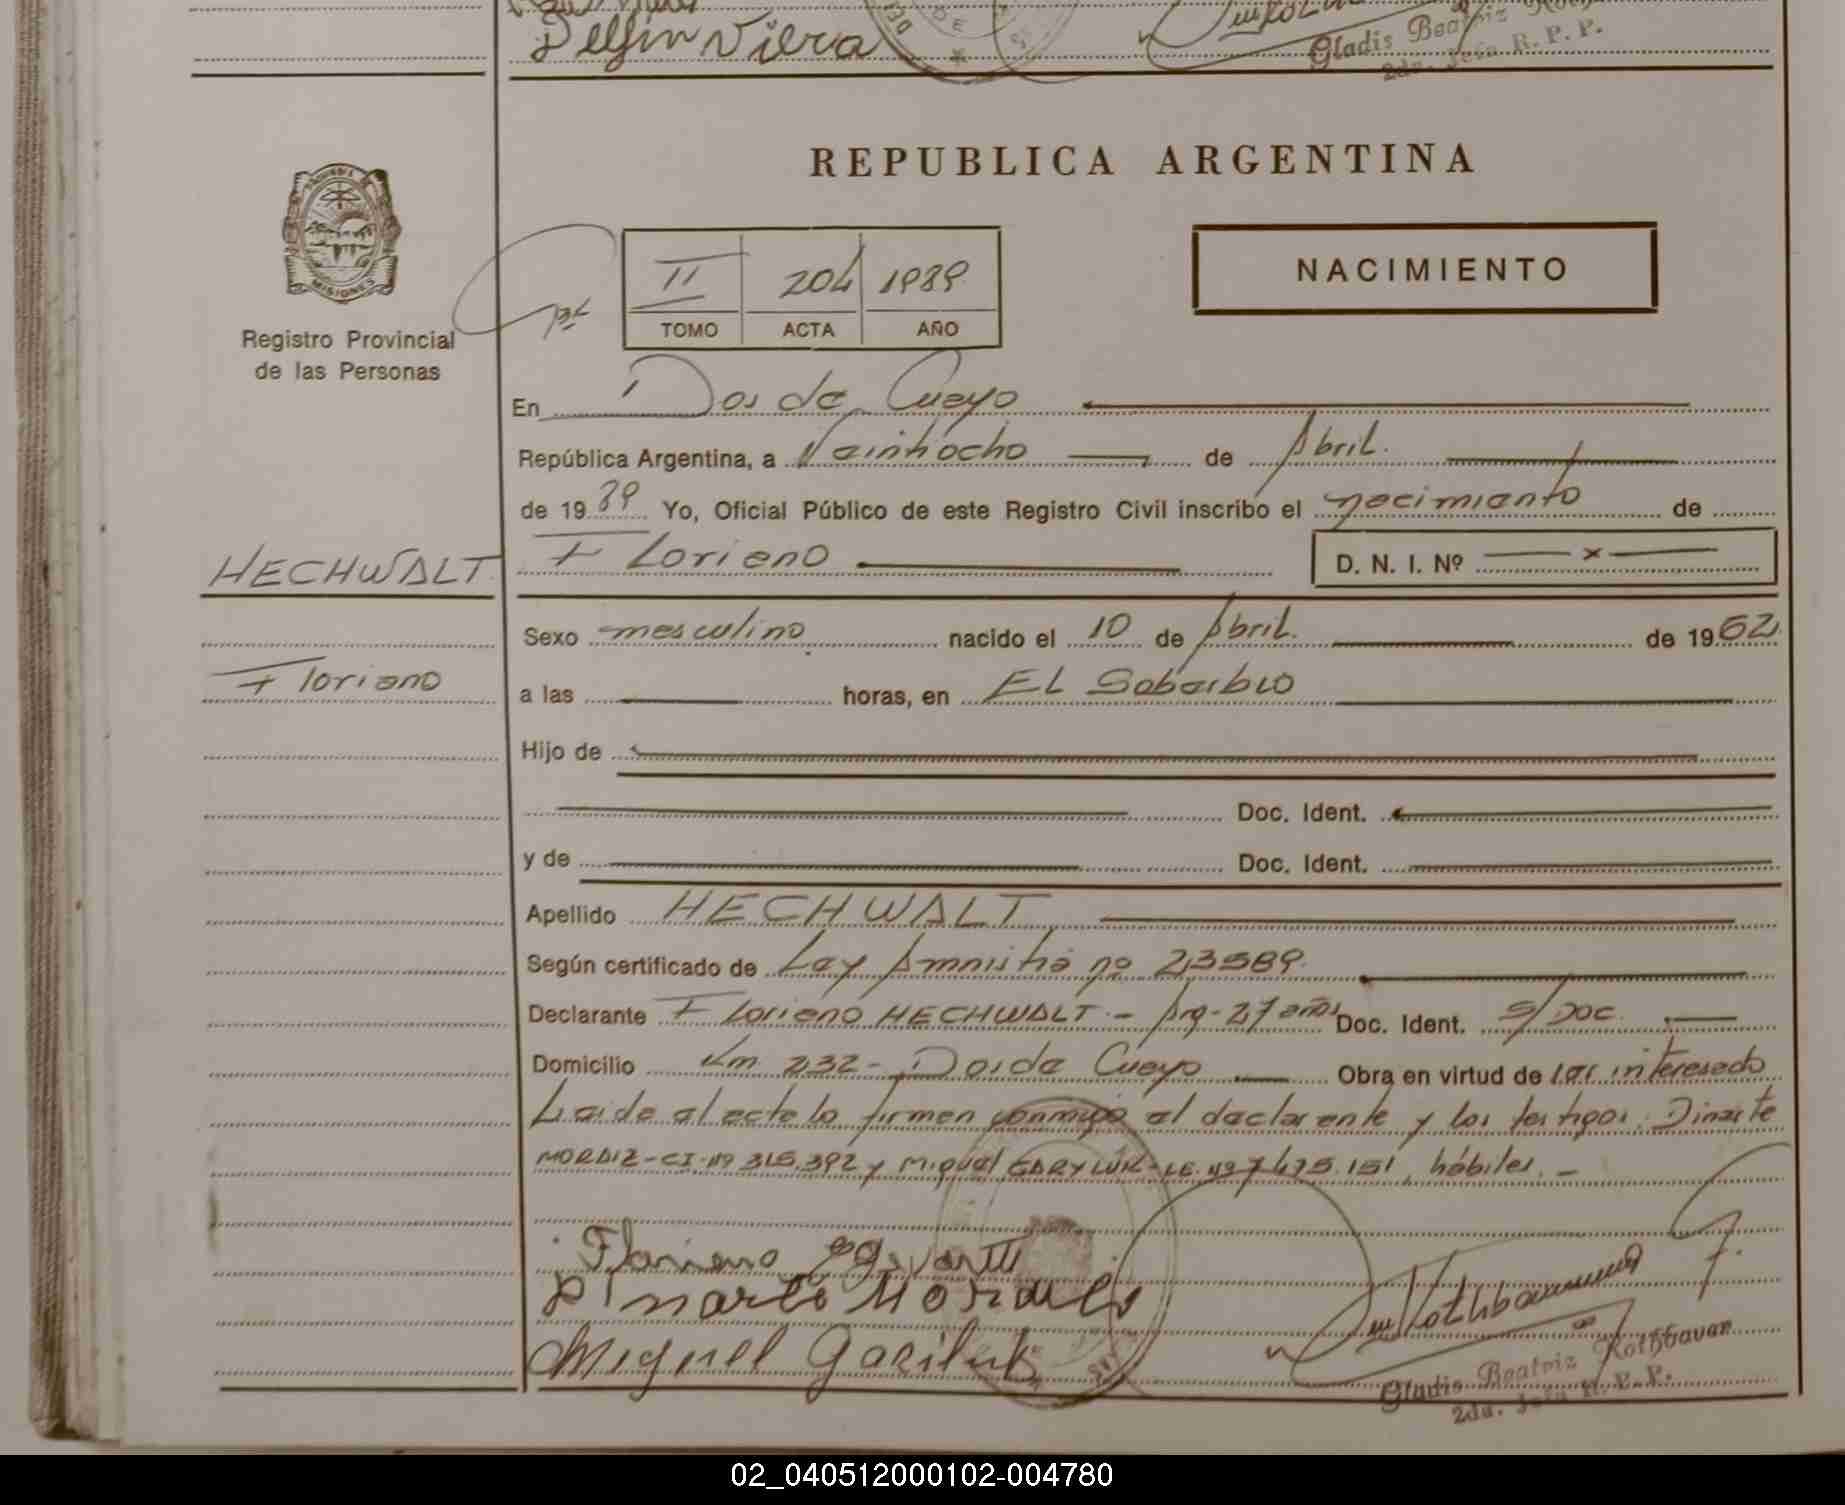 Delfin Viera
Gladis Beatriz
2da. Jefa R. P. P.
REPUBLICA ARGENTINA
MISIONES
Registro Provincial
de las Personas
II 204 1989
TOMO ACTA AÑO
NACIMIENTO
En Dos de Mayo
República Argentina, a Veintiocho de Abril.
de 1989 Yo, Oficial Público de este Registro Civil inscribo el nacimiento de
HECHWALT
Floriano
D. N. I. Nº x
Sexo masculino nacido el 10 de Abril. de 1962
Floriano
a las horas, en EL Soberbio
Hijo de
Doc. Ident.
y de Doc. Ident.
Apellido HECHWALT
Según certificado de Ley Amnistia nº 23589.
Declarante Floriano HECHWALT - Arg - 27 años Doc. Ident. S/Doc.
Domicilio Km 232 - Dos de Mayo Obra en virtud de ser interesado
Leida el acta la firman conmigo el declarante y los testigos: Dinarte
MORAIZ - CI. nº 315.392 y Miguel GARYLUK - LE. nº 7.475.151, hábiles. -
Floriano
Dinarte Morales
Miguel Gariluk
Gladis Beatriz Rothbauer
2da. Jefa R. P. P.
02_040512000102-004780